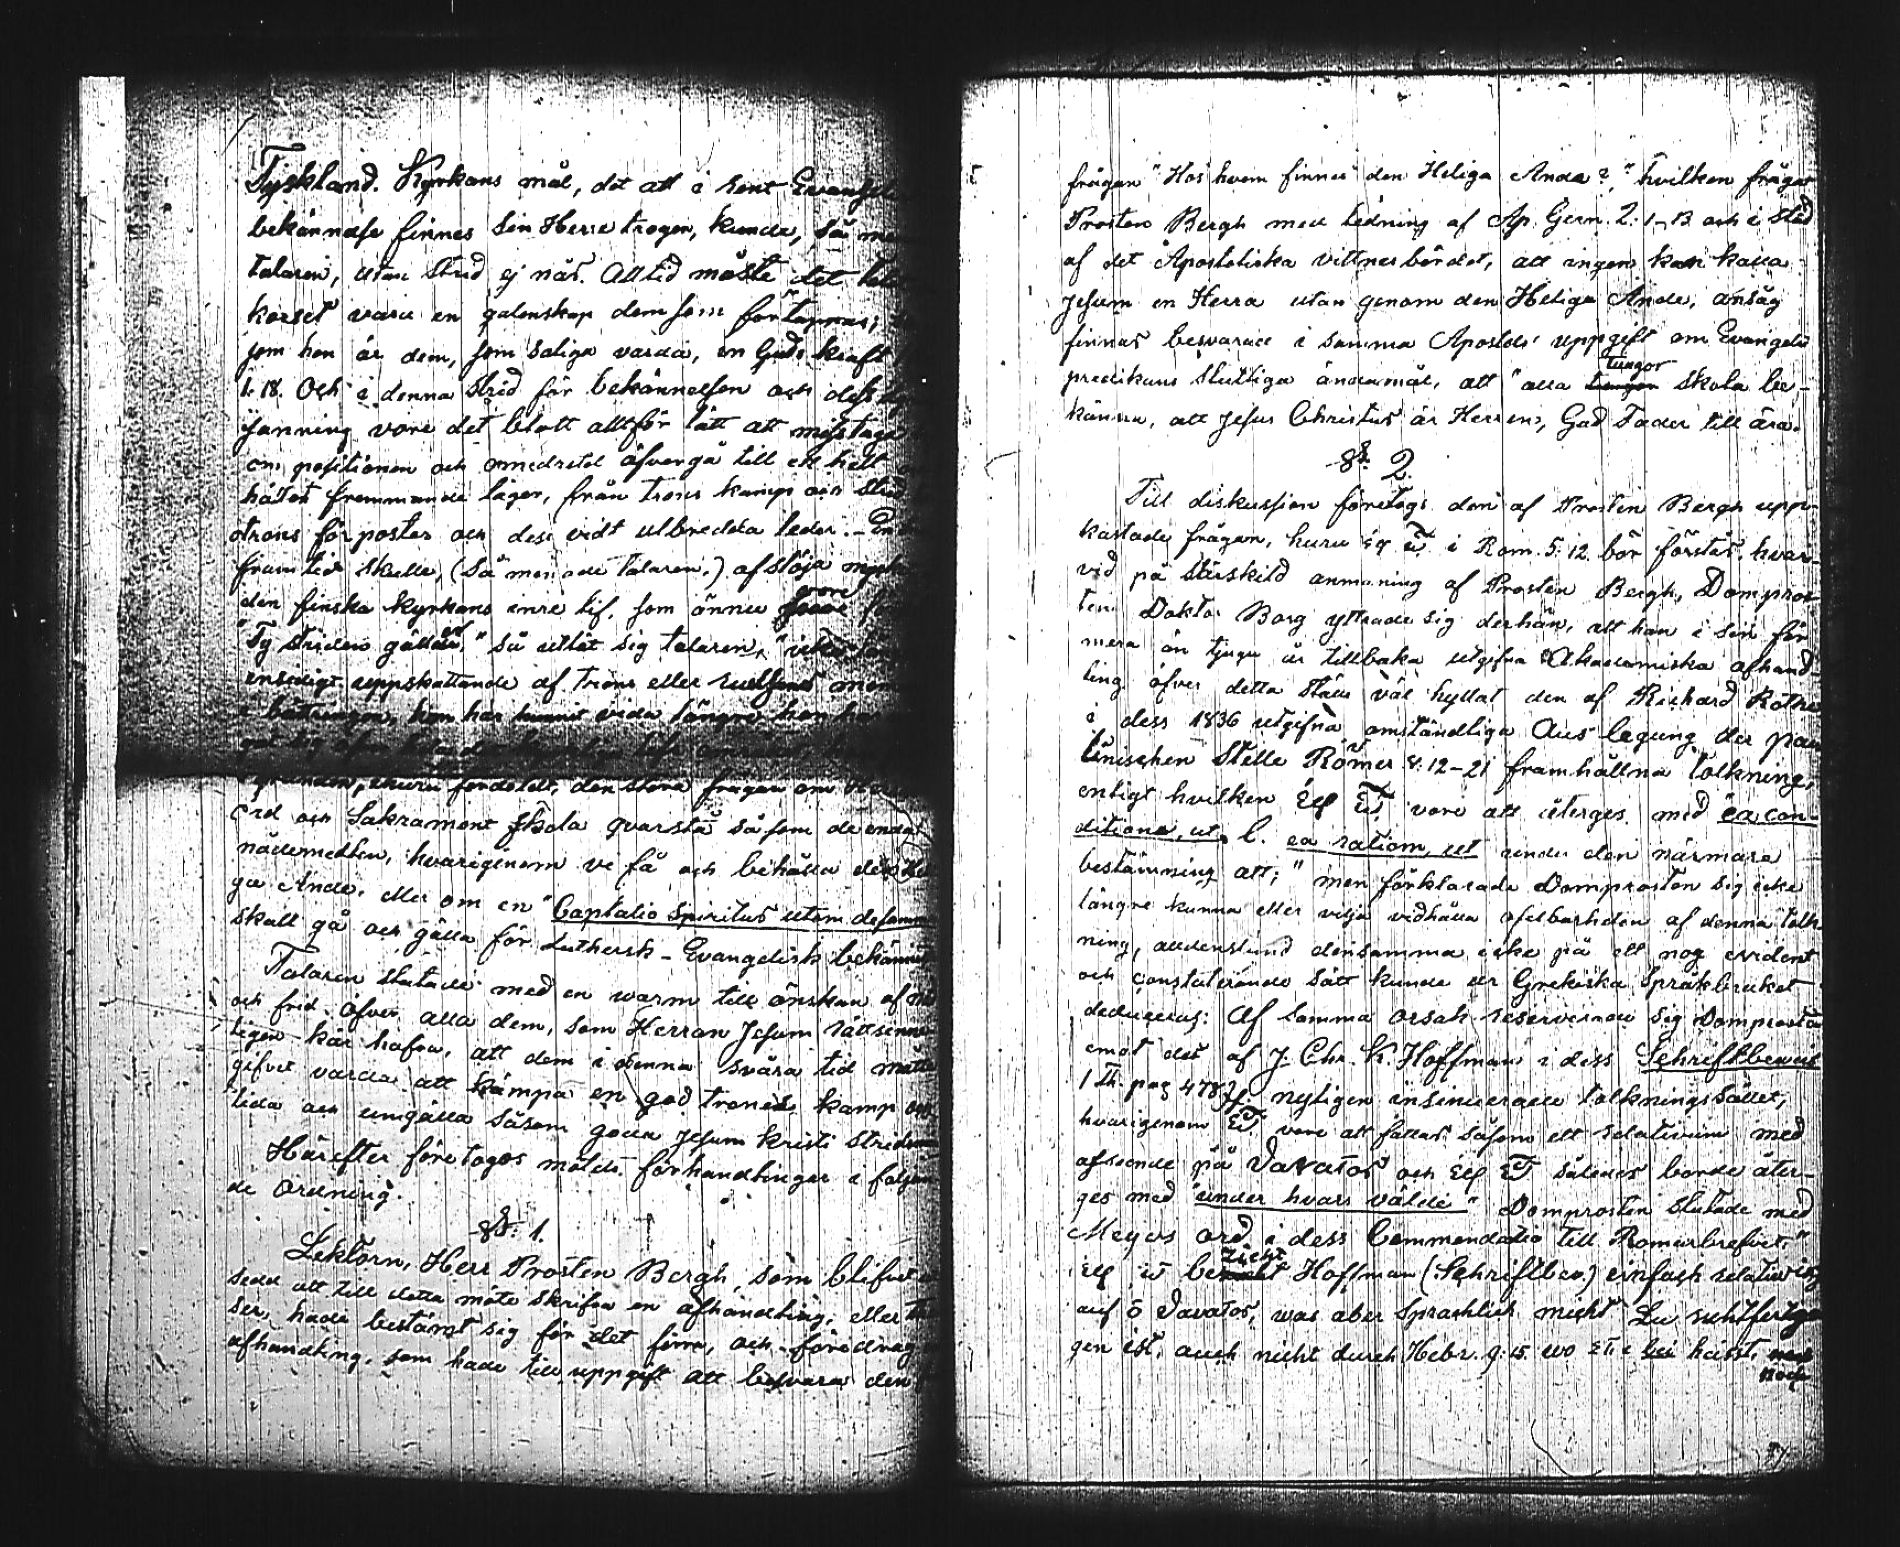 Tyskland. Kyrkans mål, det att i rent Evangel
bekännelse finnes sin Herre trogen, kunde, så me
talaren, utan strid ej nås. Alltid måste det
korset vara en galenskap dem som förtappas,
som hon är dem, som saliga varda, en Guds kraft
1: 18. Och i denna strid för bekännelsen och dess
vore det blott alltför lätt att misstaga
om positionen och omedvetet öfvergå till ett helt
främmande läger, från trons kamp och
otrons förposter och dess vidt utbredda leder. – En
framtid skulle, (så menade talaren.) afslöja
den finska kyrkans inre lif, som ännu vore
"Ty striden gäller," så utlät sig talaren,
ensidigt uppskattande af trons eller
bättringen, hon har vida längre
den stora frågan om
ord och Sakrament skola qvarstå såsom de enda
nådemedlen, hvarigenom vi få och behålla den He
ga Ande, eller om en "Captatio Spiritus utom desamma
skall gå och gälla för Luthersk-Evangelisk bekänne
Talaren slutade med en warm till önskan af nå
och frid öfver alla dem, som Herran Jesum rättsinne
ligen kär hafva, att dem i denna svåra tid måtte
gifvet varda att kämpa en god trones kamp och
lida och umgälla såsom goda Jesum Kristi stridsmän
Härefter företogos mötets förhandlingar i följan
de ordning.
§. 1.
Lektorn, Herr Prosten Bergh, som blifvit
sedd att till detta möte skrifva en afhandling, eller
ser, hade bestämt sig för det förra, och föredrag
afhandling, som hade till uppgift att besvara den
frågan "Hos hvem finnes den Heliga Anda?," hvilken frågat
Prosten Bergh med ledning af Ap. Gern. 2: 1-13 och i stöd
af det Apostoliska vittnesbördet, att ingen kan kalla
Jesum en Herra utan genom den Heliga Ande, ansåg
finnas besvarad i samma Apostels uppgift om Evangelii
predikans slutliga ändamål, att "alla tungor skola be-
känna, att Jesus Christus är Herren, Gud Fader till ära.
§. 2.
Till diskussion företogs den af Prosten Bergh upp-
kastade frågan, huru ἐφ ᾧ i Rom. 5: 12. bör förstås, hvar-
vid på särskild anmaning af Prosten Bergh, Dompros-
ten Doktor Borg yttrade sig derhän, att han i sin för
mera än tjugu år tillbaka utgifna Akademiska afhand-
ling öfver detta ställe väl hyllat den af Richard Rothe
i dess 1836 utgifna omständliga Auslegung der pau
linischen Stelle Römer 5: 12-21 framhållna tolkning,
enligt hvilken ἐφ ᾧ vore att återges med ea con-
ditione, ut, l. ea ratione, ut under den närmare
bestämning att;" men förklarade Domprosten sig icke
längre kunna eller vilja vidhålla ofelbarheten af denna tolk-
ning, alldenstund densamma icke på ett nog evident
och constaterande sätt kunde ur Grekiska Språkbruket
deduceras: Af samma orsak reserverade sig Domprosten
emot det af J. Chr. K. Hoffman i dess Schriftbeweis
1 Th. pag 478 ff nyligen insinuerade tolkningssättet,
hvarigenom ᾧ vore att fattas såsom ett relativum med
afseende på θανατος och ἐφ ᾧ således borde åter-
ges med "under hvars välde" Domprosten slutade med
Meyers ord i dess Commendatio till Romarbrefvet."
ἐφ ᾧ bezieht Hoffman (Schriftbew.) einfach relativisch
auf ὁ θανατος, was aber Sprachlich nicht zu rechtferti
gen ist, auch nicht durch Hebr. 9: 15. wo ἐπι bei heisst,
noch